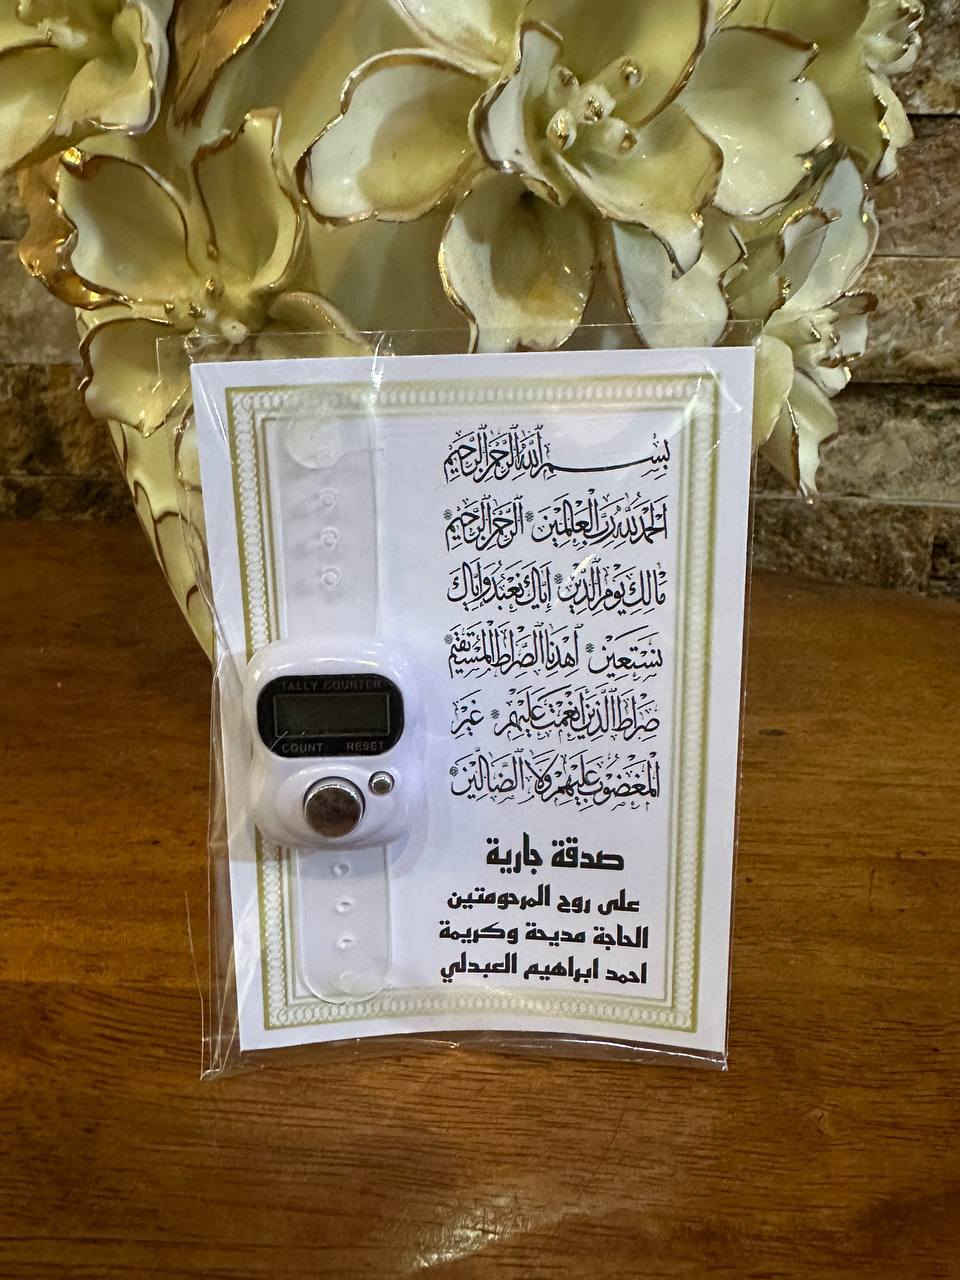 بِسْمِ اللَّهِ الرَّحْمَٰنِ الرَّحِيمِ
الْحَمْدُ لِلَّهِ رَبِّ الْعَالَمِينَ * الرَّحْمَٰنِ الرَّحِيمِ *
مَالِكِ يَوْمِ الدِّينِ * إِيَّاكَ نَعْبُدُ وَإِيَّاكَ
نَسْتَعِينُ * اهْدِنَا الصِّرَاطَ الْمُسْتَقِيمَ *
صِرَاطَ الَّذِينَ أَنْعَمْتَ عَلَيْهِمْ * غَيْرِ
الْمَغْضُوبِ عَلَيْهِمْ وَلَا الضَّالِّينَ *
صدقة جارية
على روح المرحومتين
الحاجة مديحة وكريمة
احمد ابراهيم العبدلي
TALLY COUNTER
COUNT RESET